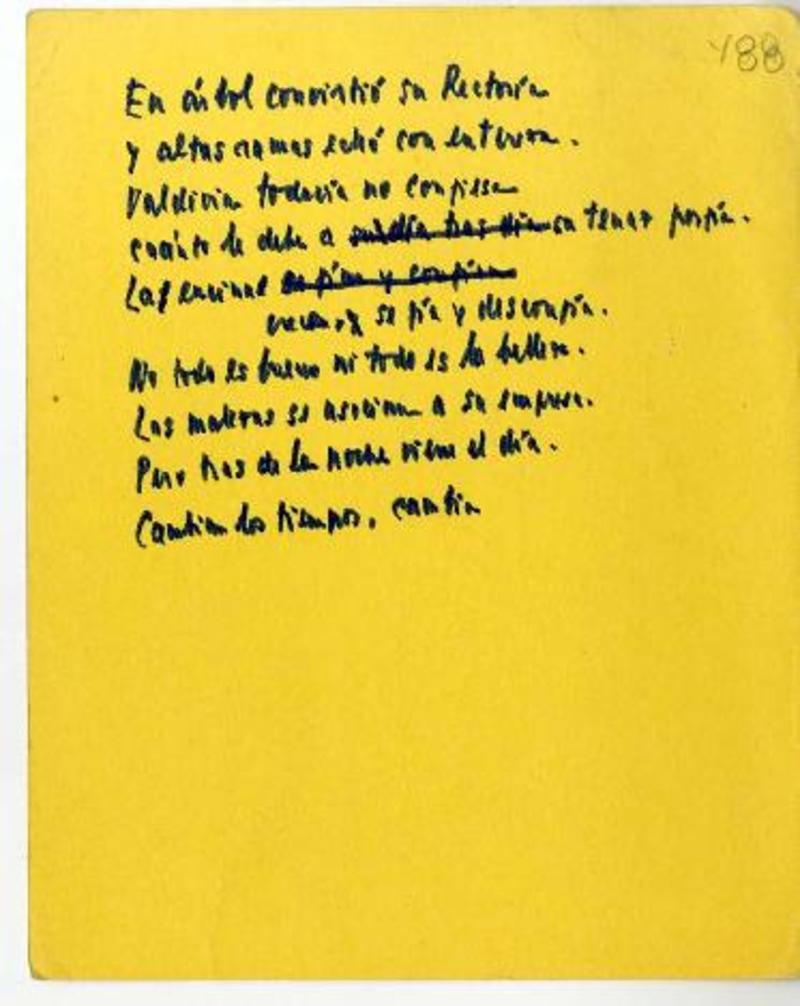 188
En árbol convirtió su Rectoría
y altas ramas echó con entereza.
Valdivia todavía no confiesa
cuánto le debe a su día tras día su tenaz porfía.
Las encinas se fían y confían
crecen, y se fía y desconfía.
No todo es bueno ni todo es la belleza.
Las maderas se asocian a su empresa.
Pero tras de la noche viene el día.
Cambian los tiempos, cambia